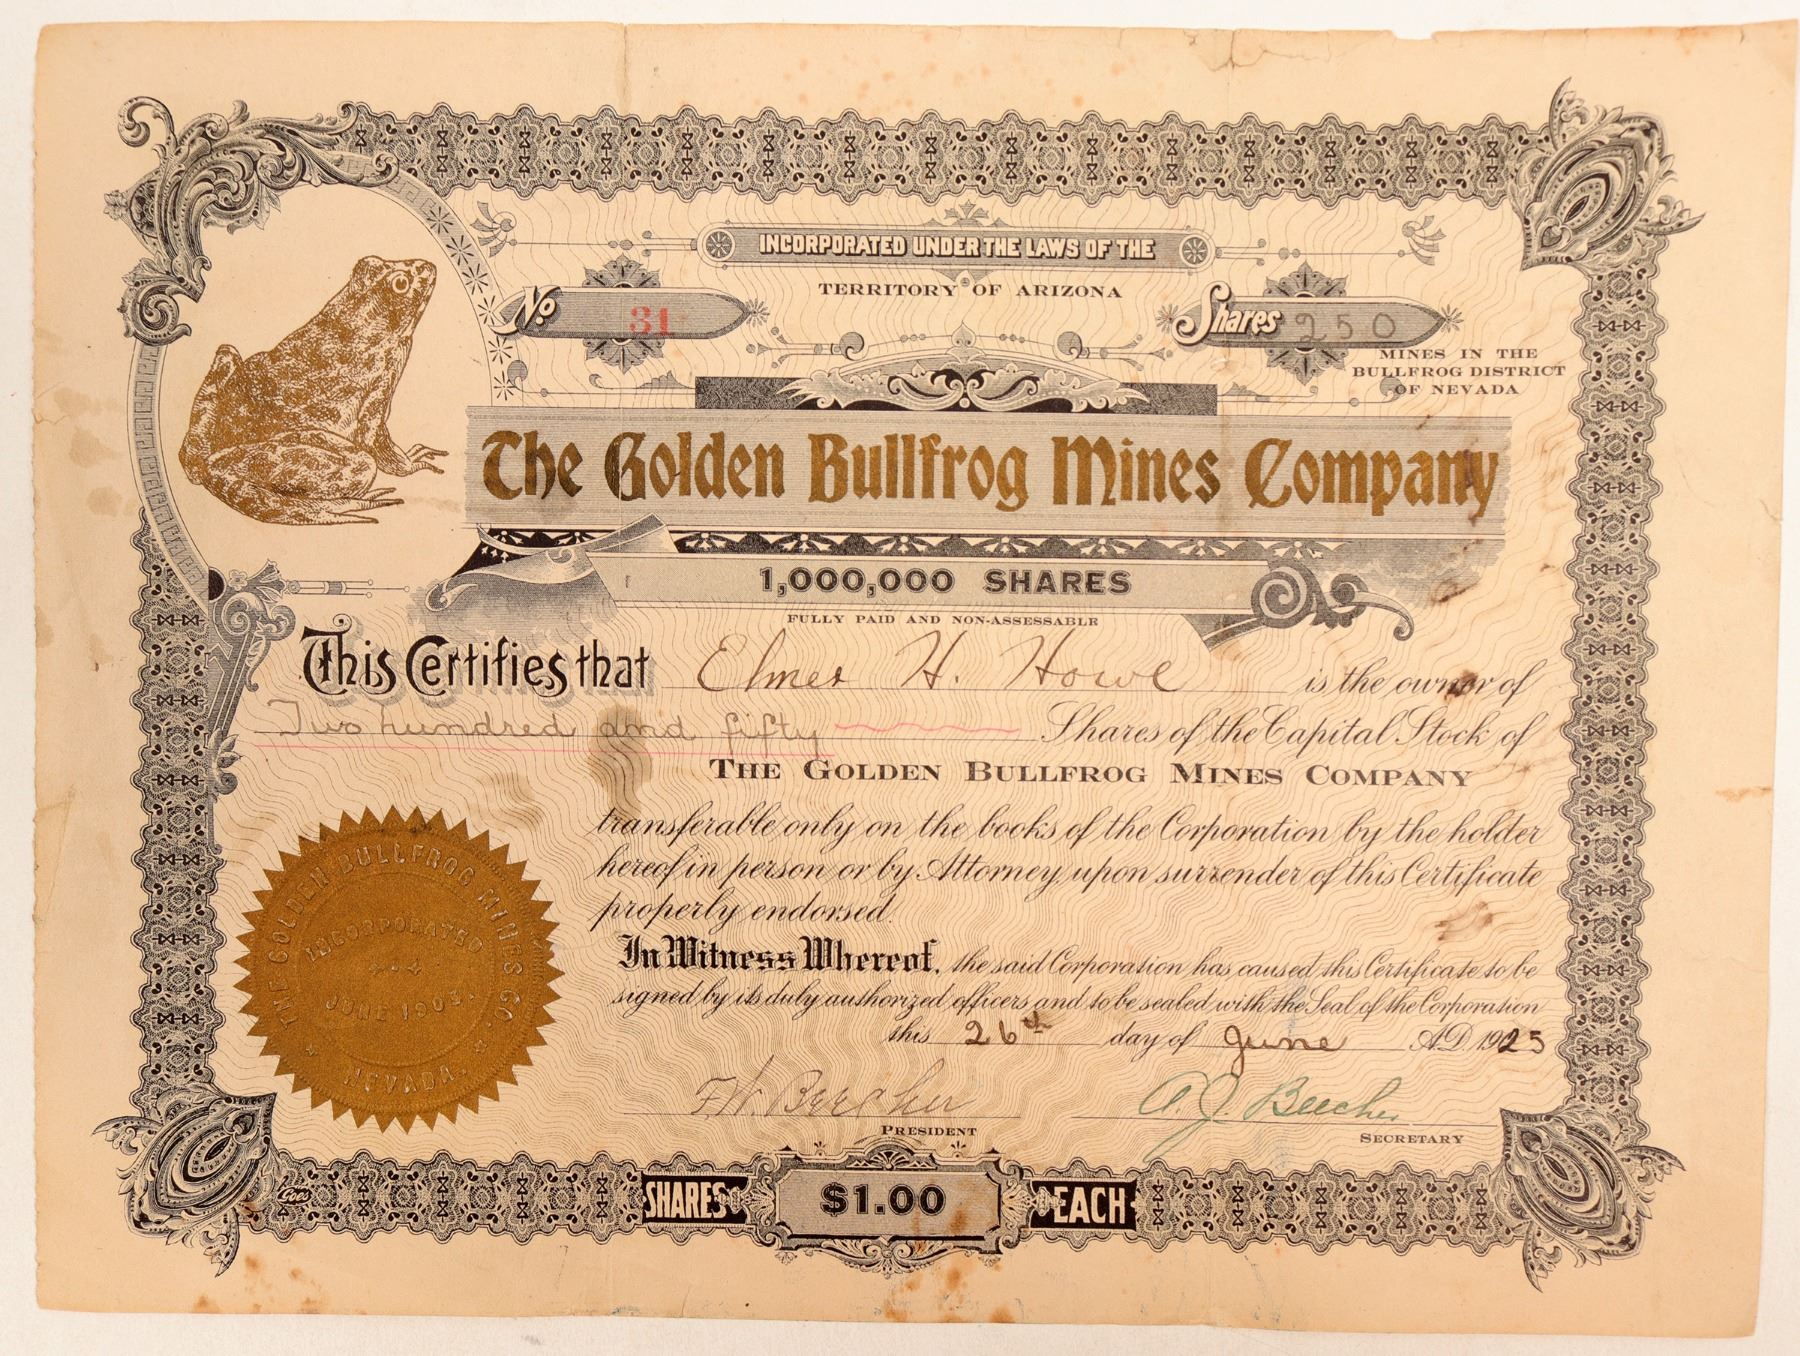 INCORPORATED UNDER THE LAWS OF THE
TERRITORY OF ARIZONA
No. 31
Shares 250
MINES IN THE
BULLFROG DISTRICT
OF NEVADA
The Golden Bullfrog Mines Company
1,000,000 SHARES
FULLY PAID AND NON-ASSESSABLE
This Certifies that Elmer H. Howe is the owner of
Two hundred and fifty Shares of the Capital Stock of
THE GOLDEN BULLFROG MINES COMPANY
transferable only on the books of the Corporation by the holder
hereof in person or by Attorney, upon surrender of this Certificate
properly endorsed.
In Witness Whereof, the said Corporation has caused this Certificate to be
signed by its duly authorized officers and to be sealed with the Seal of the Corporation
this 26th day of June A.D. 1925
F. W. Beecher
PRESIDENT
A. J. Beecher
SECRETARY
THE GOLDEN BULLFROG MINES CO.
INCORPORATED
JUNE 1905.
NEVADA.
Goes
SHARES $1.00 EACH